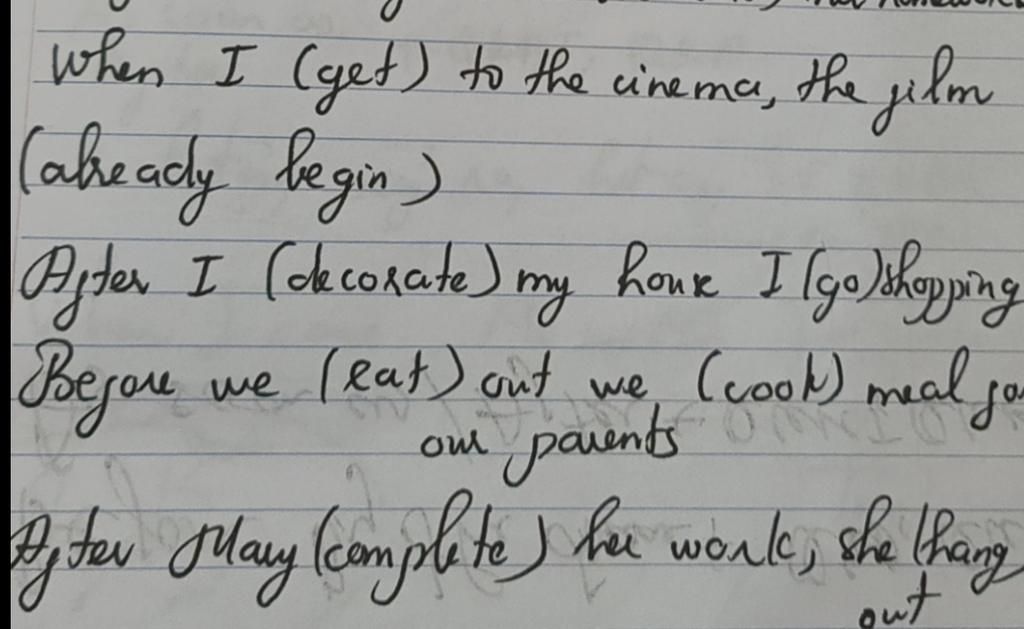 When I (get) to the cinema, the film
(already begin)
After I (decorate) my house I (go) shopping
Before we (eat) out we (cook) meal fo
our parents
After Mary (complete) her work, she (hang
out